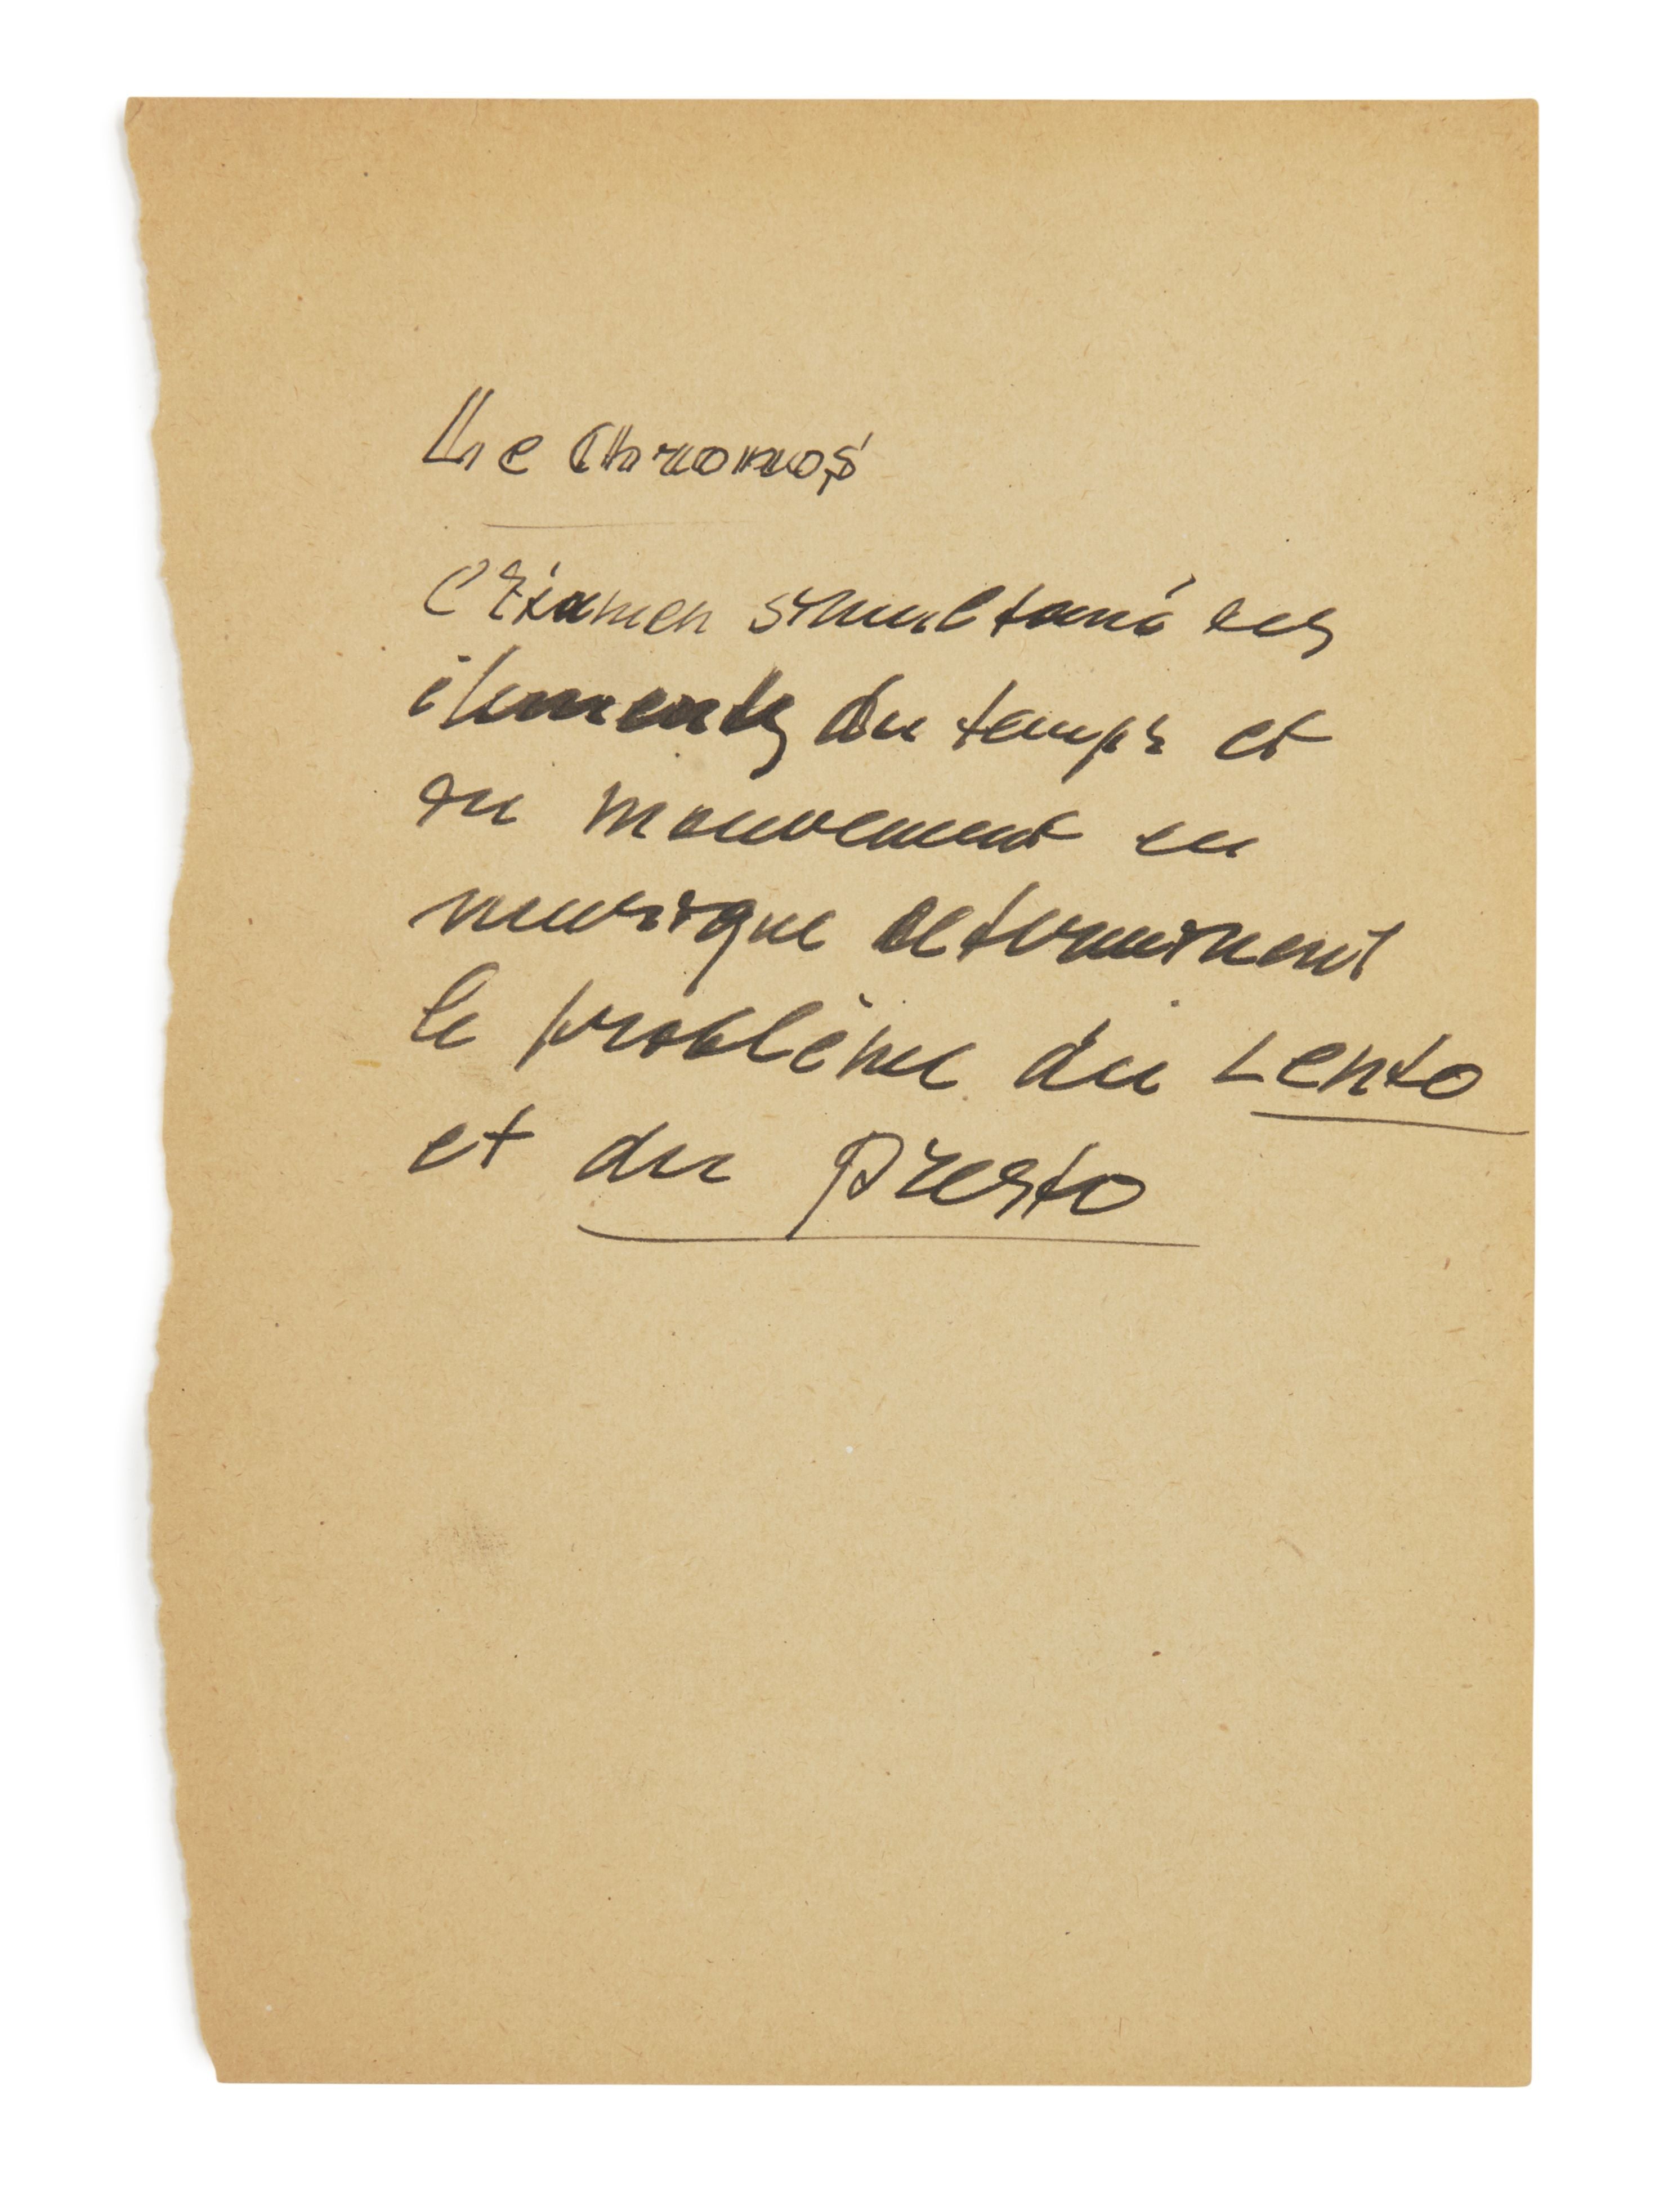 Le Chronos
l'Examen simultané des
élements du temps et
du mouvement en
musique determinent
le problème du Lento
et du Presto